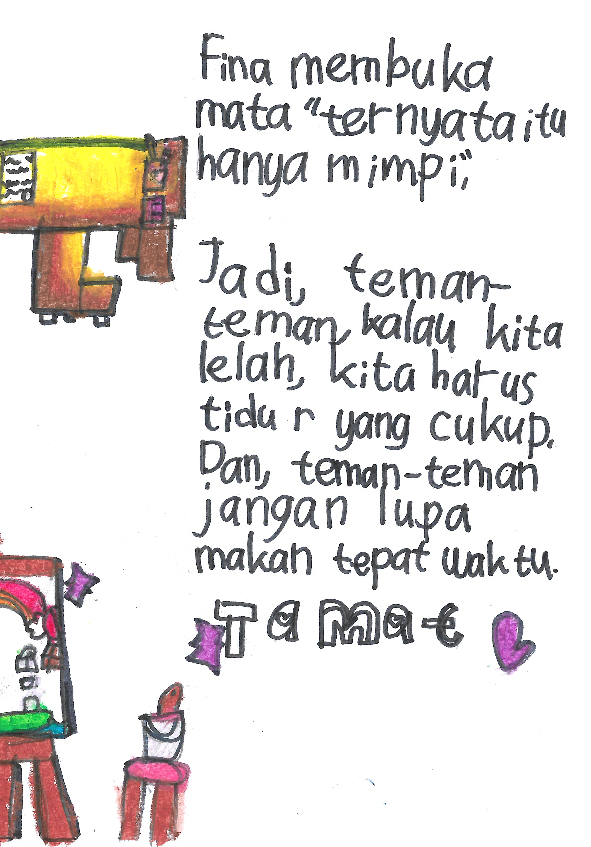 Fina membuka
mata "ternyata itu
hanya mimpi,"
Jadi, teman-
teman, kalau kita
lelah, kita harus
tidur yang cukup.
Dan, teman-teman
jangan lupa
makan tepat waktu.
Tamat